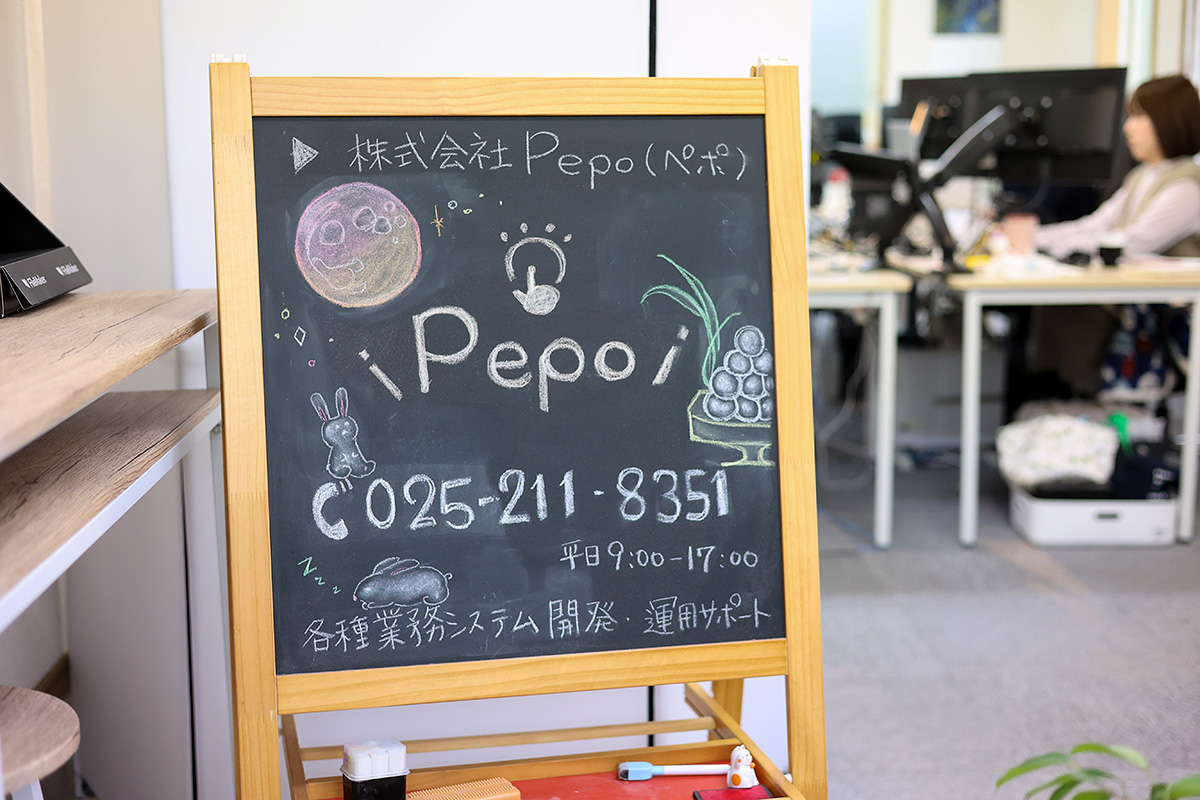 株式会社Pepo(ペポ)
Pepo
025-211-8351
平日9:00-17:00
zzzz
各種業務システム開発・運用サポート
FileMaker